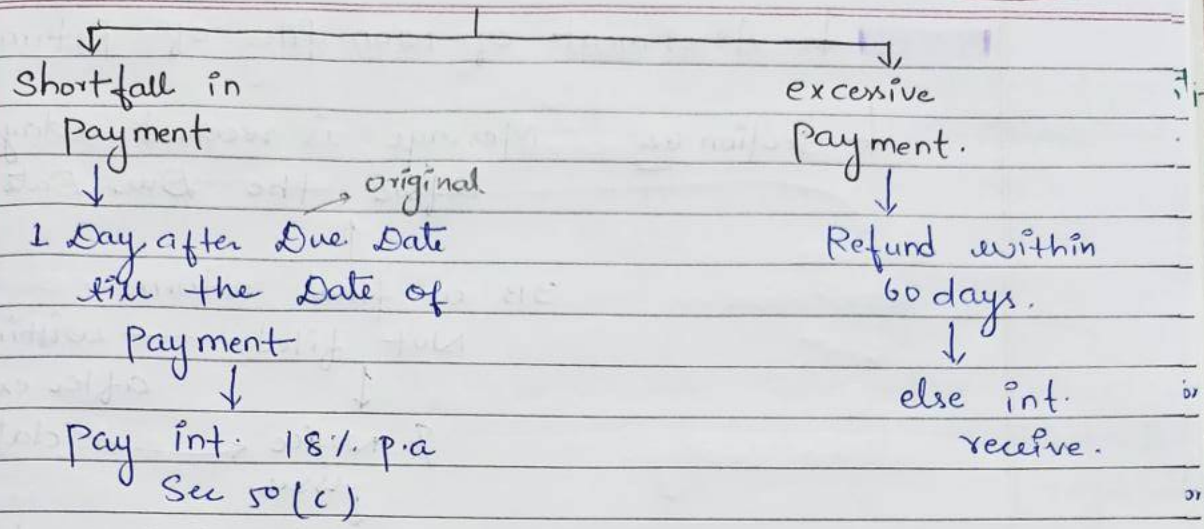 Shortfall in
Payment
original
1 Day after Due Date
till the Date of
Payment
Pay int. 18% p.a
Sec 50(c)
excessive
Payment.
Refund within
60 days.
else int.
receive.